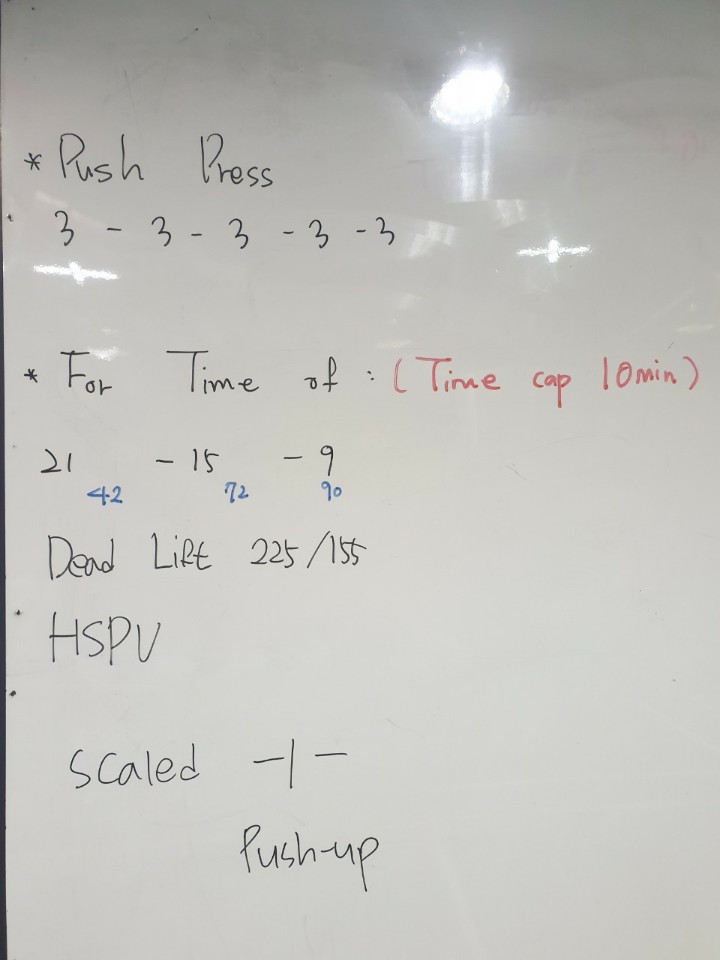 * Push Press
3 - 3 - 3 - 3 - 3
* For Time of : (Time cap 10min)
21 - 15 - 9
42 72 90
Dead Lift 225/155
HSPU
Scaled -1-
Push-up